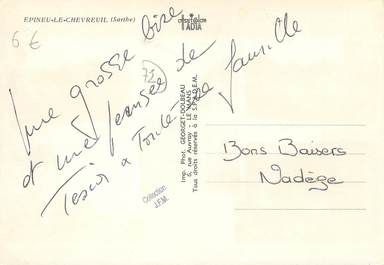 6 €
EPINEU-LE-CHEVREUIL (Sarthe)
TADIA
une grosse bise
et une pensée de
a toute la famille
73
Imp. Phot. GEORGET-DOLBEAU
6, rue Auvray - LE MANS
Tous droits réservés à la S.P.A.D.E.M.
Collection
J.F.M.
Bons Baisers
Nadège